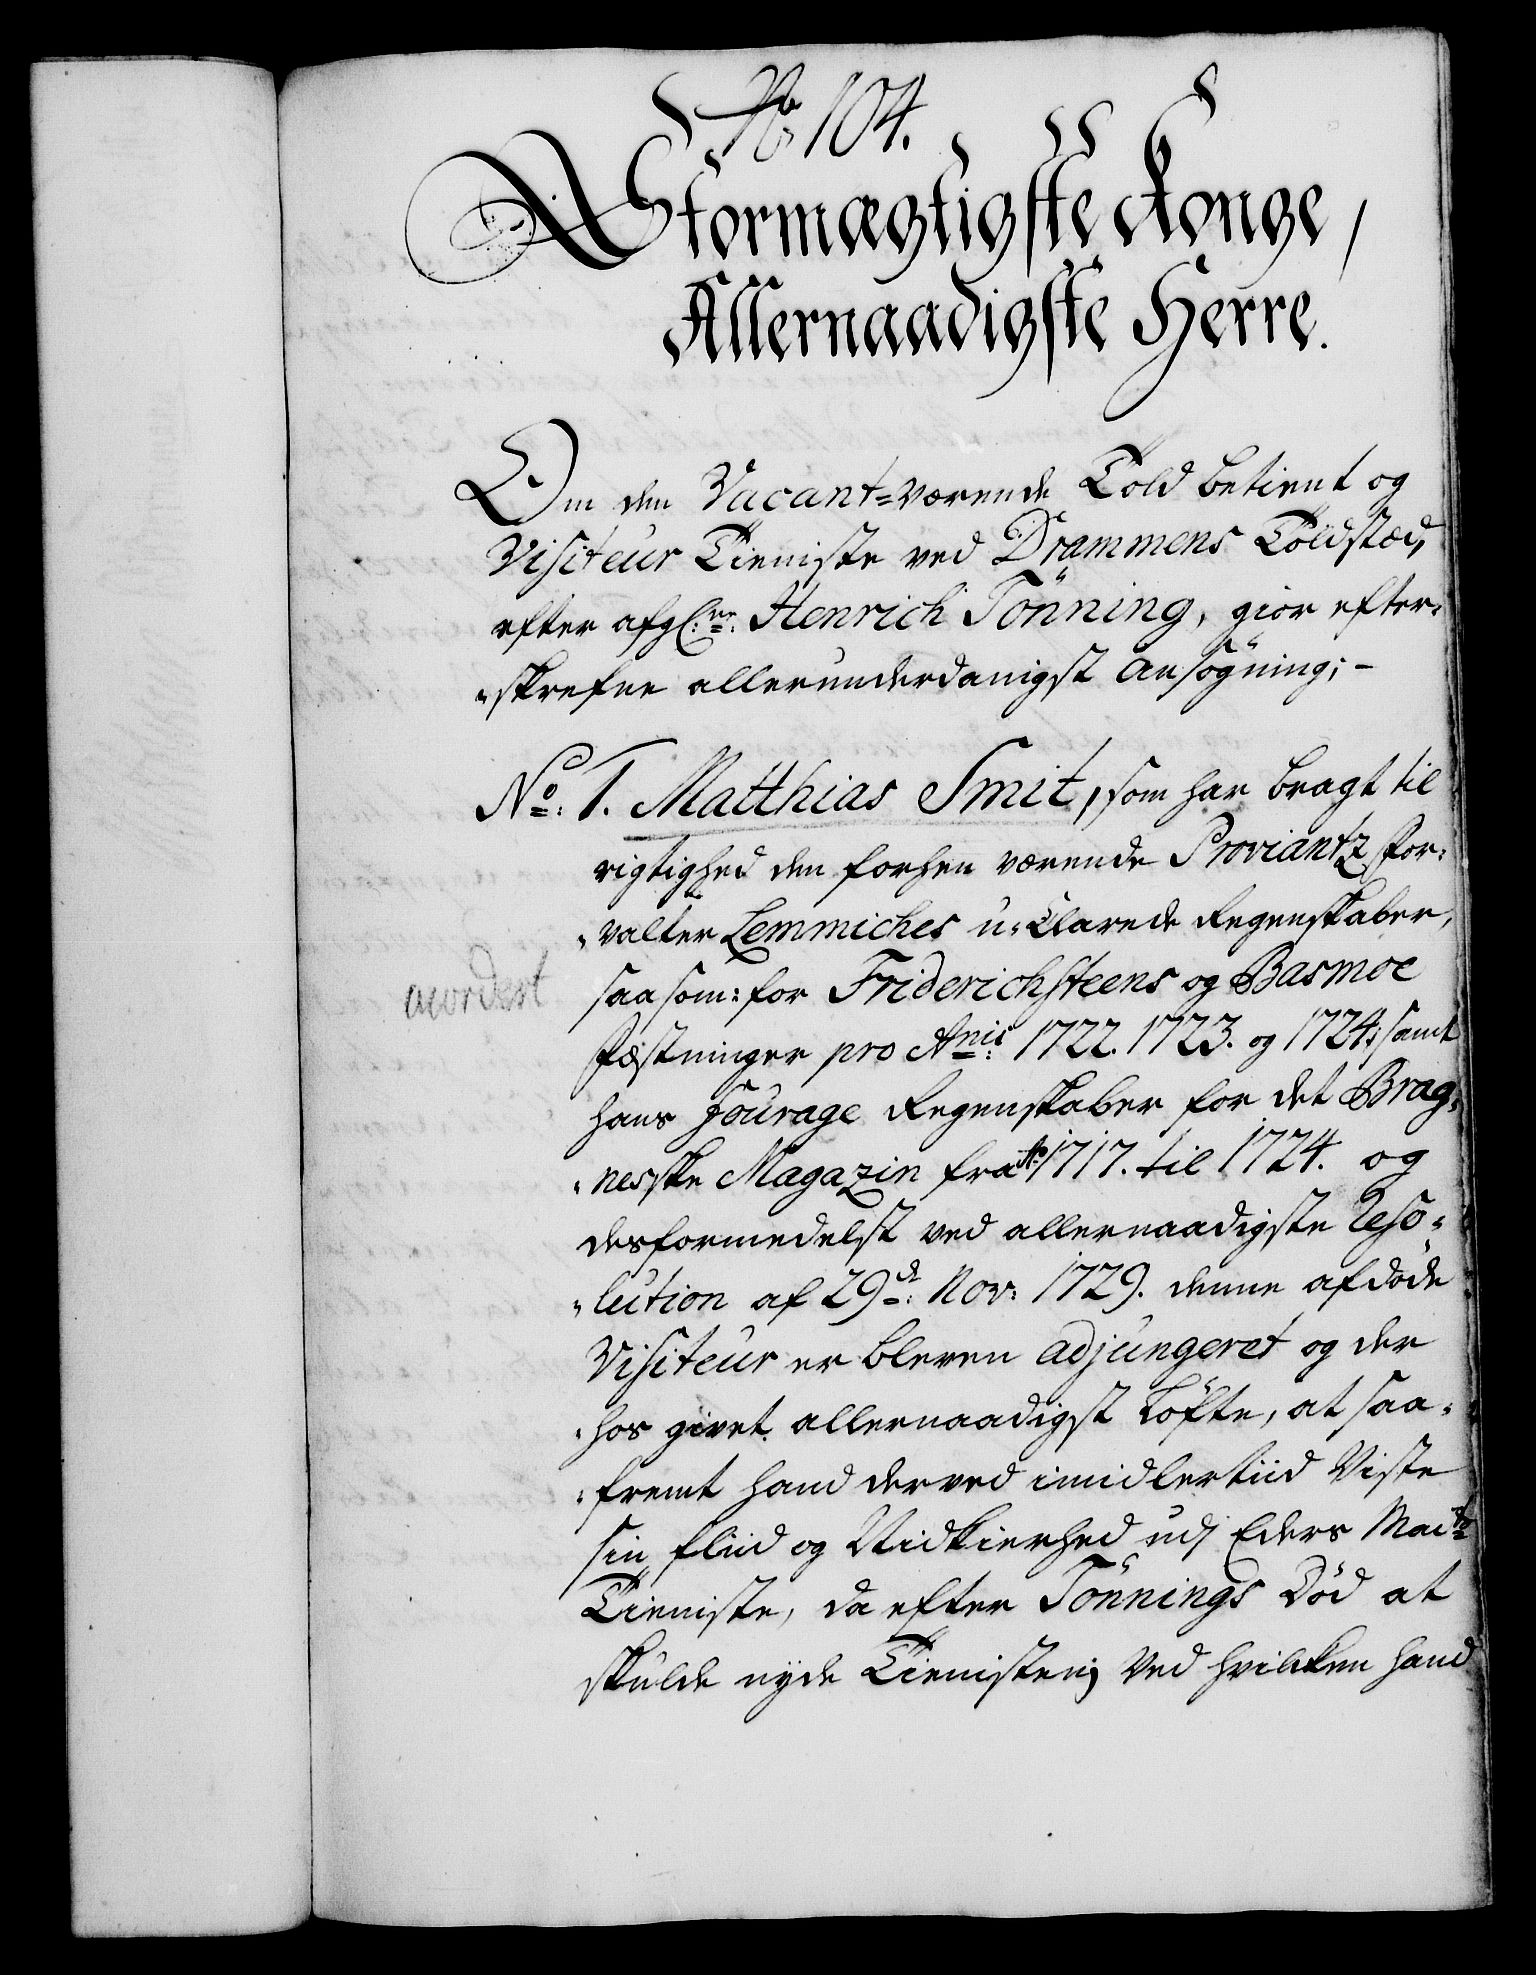 No 104.
Stormægtigste Konge,
Allernaadigste Herre.
Om den Vacant=værende Told betient og
Visiteur Tieniste ved Drammens Toldstæd,
efter afgl: Henrich Tönning, giör efter=
=skrefne allerunderdanigst Ansögning; -
No: 1. Matthias Smit, som har bragt til
rigtighed den forhen værende Proviantz for=
=valter Lemmiches u=Clarede Regenskaber,
saasom: for Friderichsteens og Basmoe
Fæstninger pro Anis: 1722. 1723. og 1724; samt
hans Fourage Regenskaber for det Brag=
=nesske Magazin fra Ao 1717. til 1724. og
desformedelst ved allernaadigste Reso=
=lution af 29de: Nov: 1729. denne afdöde
Visiteur er bleven adjungeret og der
=hos givet allernaadigst Löfte, at saa=
=fremt hand derved imidlertiid Viste
sin fliid og Nidkierhed udj Eders Maits
Tieniste, da efter Tönnings Död at
skulde nyde Tienisten; Ved hvilken hand